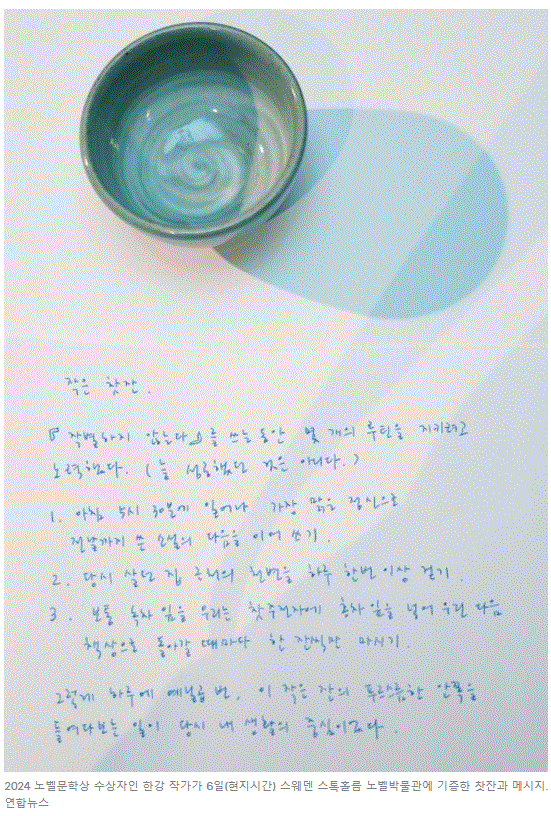 작은 찻잔.
『작별하지 않는다』를 쓰는 동안 몇 개의 루틴을 지키려고
노력했다. (늘 성공했던 것은 아니다.)
1. 아침 5시 30분에 일어나 가장 맑은 정신으로
전날까지 쓴 소설의 다음을 이어 쓰기.
2. 당시 살던 집 근처의 천변을 하루 한번 이상 걷기.
3. 보통 녹차 잎을 우리는 찻주전자에 홍차잎을 넣어 우린 다음
책상으로 돌아갈 때마다 한 잔씩만 마시기.
그렇게 하루에 예닐곱 번, 이 작은 잔의 푸르스름한 안쪽을
들여다보는 일이 당시 내 생활의 중심이었다.
2024 노벨문학상 수상자인 한강 작가가 6일(현지시간) 스웨덴 스톡홀름 노벨박물관에 기증한 찻잔과 메시지.
연합뉴스